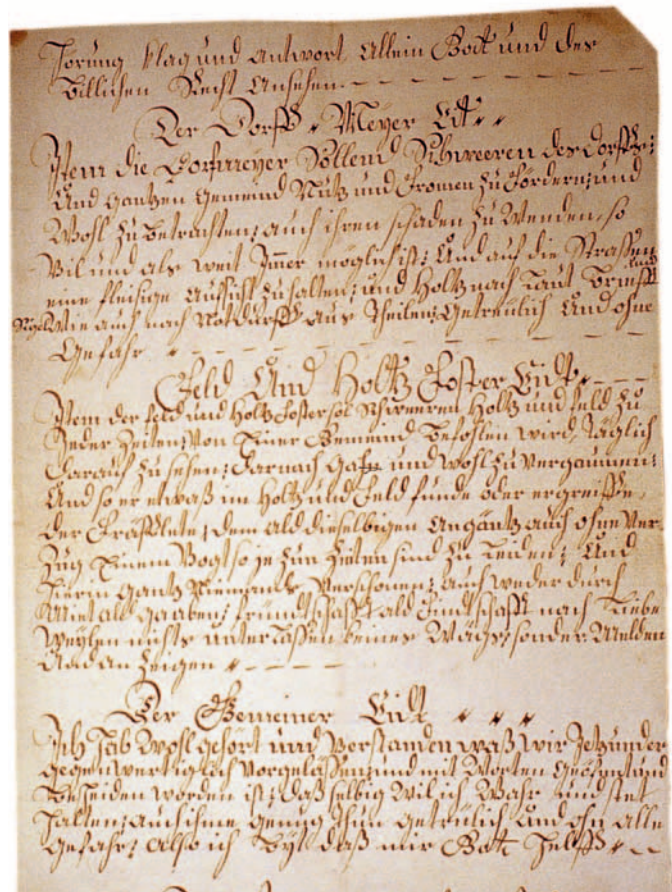 hörung klag und antwort, allein Gott und des
billichen Recht ansehen
Der Dorff Meyer Eidt
Item die Dorfmeyer Sollend Schweeren des dorffs
Und gantzen gemeind Nutz und Fromen zu Fordern; und
Wohl zu betrachten; auch ihren schaden zu Wenden, so
Vil und als weit Immer möglich ist; Und auf die Strassen
eine fleisige aufsicht zu halten; und Holtz nach Laut brieff
Wie auch nach Notdurfft aus Theilen; Getreulich Und ohne
Gefahr
Feld Und Holtz Foster Eidt
Item der feld und Holtz foster sol Schweeren Holtz und feld zu
Jeder Zeiten; Von Einer Gemeind befohlen wird, Täglich
darauf zu sehen; darnach Gahn und wohl zu vergaumen;
Und so er etwaß im Holtz und Feld funde oder ergreiffe,
der Fräfflete; dem ald dieselbigen angäntz auch ohne Ver
Zug Einem Vogt so je zun Zeiten sind zu Leiden; Und
hierin gantz Niemands Verschonen; auch weder durch
Miet ald gaaben; fründtschafft ald Findtschafft nach Liebe
Weylen nichts unterlassen keines Wägs; sonder Melden
Und an Zeigen
Der Gemeiner Eidt
Ich hab Wohl gehört und Verstanden waß wir Jetzunder
gegenwertiglich vorgeläsen; und mit Worten geöfnet und
bescheiden worden ist; daß selbig Wil ich Wahr und stet
halten; auch ihme genug thun getreülich Und ohn alle
gefahr; also ich bitt daß mir Gott helff